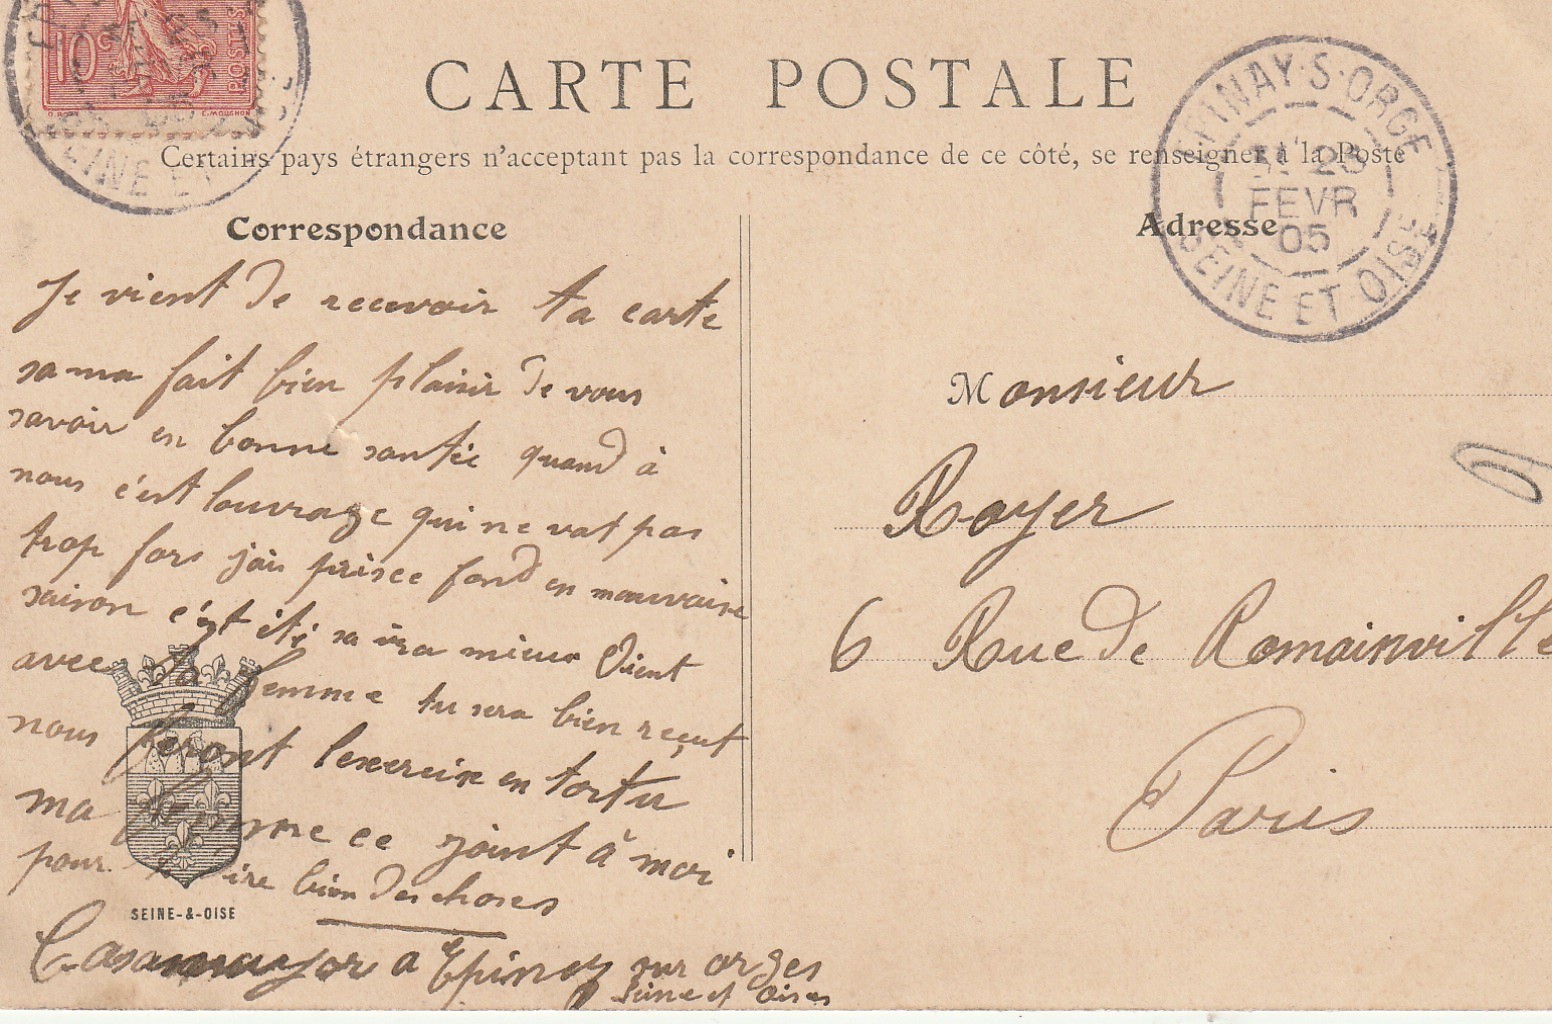 10c
POSTES
C. MOUCHON
SEINE ET
CARTE POSTALE
Certains pays étrangers n'acceptant pas la correspondance de ce côté, se renseigner à la Poste
EPINAY-S-ORGE
23
FEVR
05
SEINE ET OISE
Correspondance
Je vient de recevoir ta carte
sa ma fait bien plaisir de vous
savoir en bonne santée quand à
nous c'est louvrage qui ne vat pas
trop fors jai prisee fond en mauvaise
saison c'ést été sa ira mieux Vient
avec ta femme tu sera bien reçut
nous feront lexercise en tortu
ma femme ce joint à moi
pour te dire bien des choses
SEINE-&-OISE
Casamayor a Epinay sur orges
Seine et Oises
Adresse
Monsieur
Royer
6 Rue de Romainville
Paris